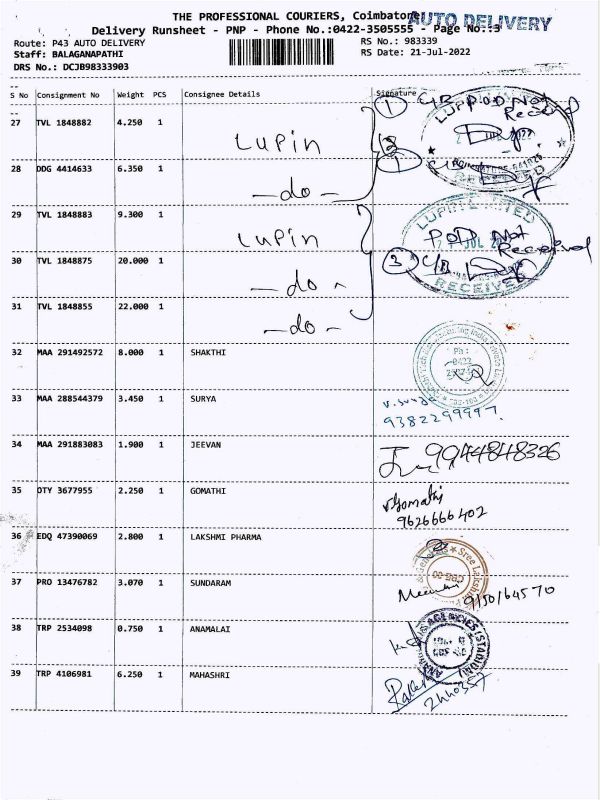 THE PROFESSIONAL COURIERS, Coimbatore
AUTO DELIVERY
Delivery Runsheet - PNP - Phone No.:0422-3505555 - Page No.:3
Route: P43 AUTO DELIVERY
RS No.: 983339
Staff: BALAGANAPATHI
RS Date: 21-Jul-2022
DRS No.: DCJB98333903
S No Consignment No Weight PCS Consignee Details Signature
27 TVL 1848882 4.250 1 Lupin
28 DDG 4414633 6.350 1 - do -
29 TVL 1848883 9.300 1 Lupin
30 TVL 1848875 20.000 1 - do -
31 TVL 1848855 22.000 1 - do -
32 MAA 291492572 8.000 1 SHAKTHI
33 MAA 288544379 3.450 1 SURYA
34 MAA 291883083 1.900 1 JEEVAN
35 OTY 3677955 2.250 1 GOMATHI
36 EDQ 47390069 2.800 1 LAKSHMI PHARMA
37 PRO 13476782 3.070 1 SUNDARAM
38 TRP 2534098 0.750 1 ANAMALAI
39 TRP 4106981 6.250 1 MAHASHRI
1 C/B POD Not
Received
LUPIN LIMITED
RECEIVED
LUPIN LIMITED
POD Not
Received
JUL
3 C/B
RECEIVED
Ph :
0422
9382299997
9944848326
Gomathi
9626666402
Sree Lakshmi
9150164570
2440357